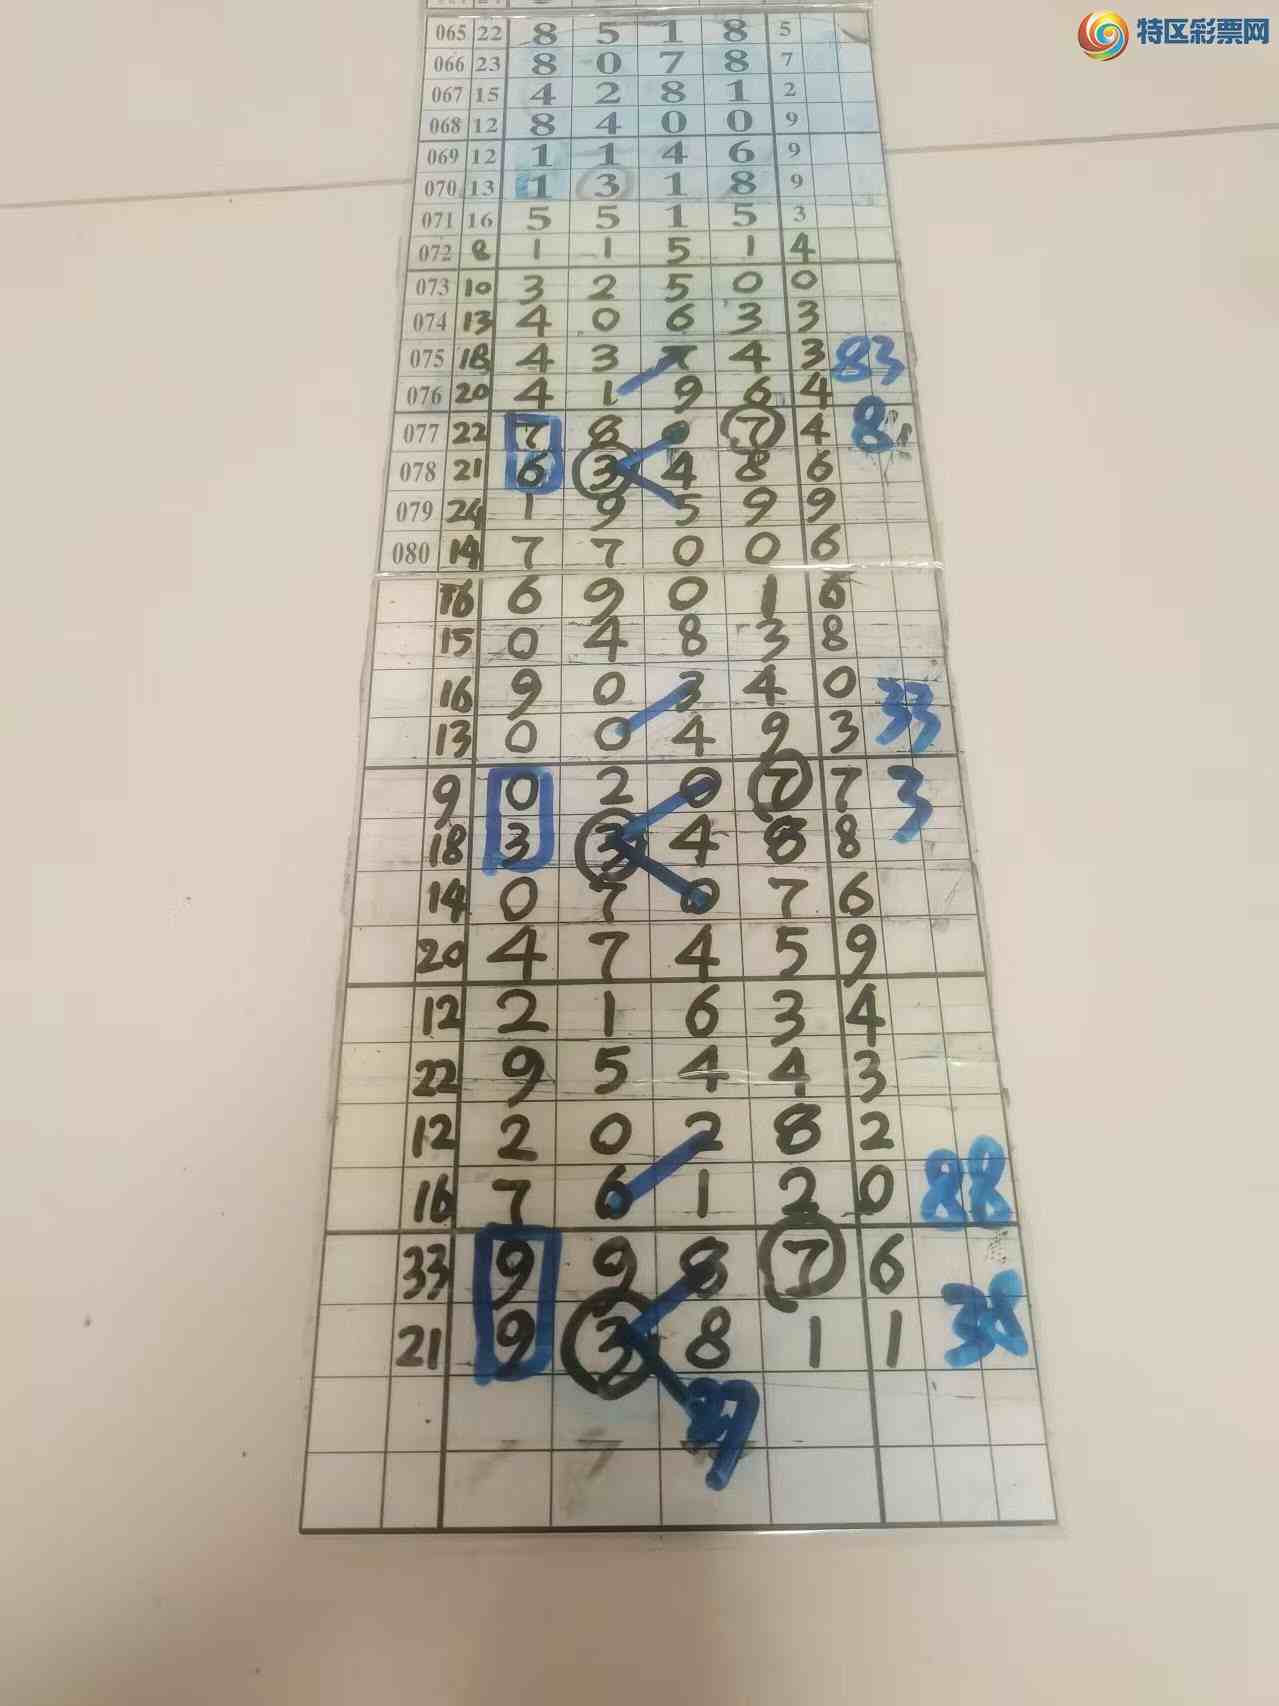 特区彩票网
065 22 8 5 1 8 5
066 23 8 0 7 8 7
067 15 4 2 8 1 2
068 12 8 4 0 0 9
069 12 1 1 4 6 9
070 13 1 3 1 8 9
071 16 5 5 1 5 3
072 8 1 1 5 1 4
073 10 3 2 5 0 0
074 13 4 0 6 3 3
075 18 4 3 7 4 3 83
076 20 4 1 9 6 4
077 22 7 8 7 4 8
078 21 6 3 4 8 6
079 24 1 9 5 9 9
080 14 7 7 0 0 6
16 6 9 0 1 6
15 0 4 8 3 8
16 9 0 3 4 0 33
13 0 0 4 9 3
9 0 2 0 7 7 3
18 3 3 4 8 8
14 0 7 0 7 6
20 4 7 4 5 9
12 2 1 6 3 4
22 9 5 4 4 3
12 2 0 2 8 2
16 7 6 1 2 0 88
33 9 9 8 7 6
21 9 3 8 1 1 38